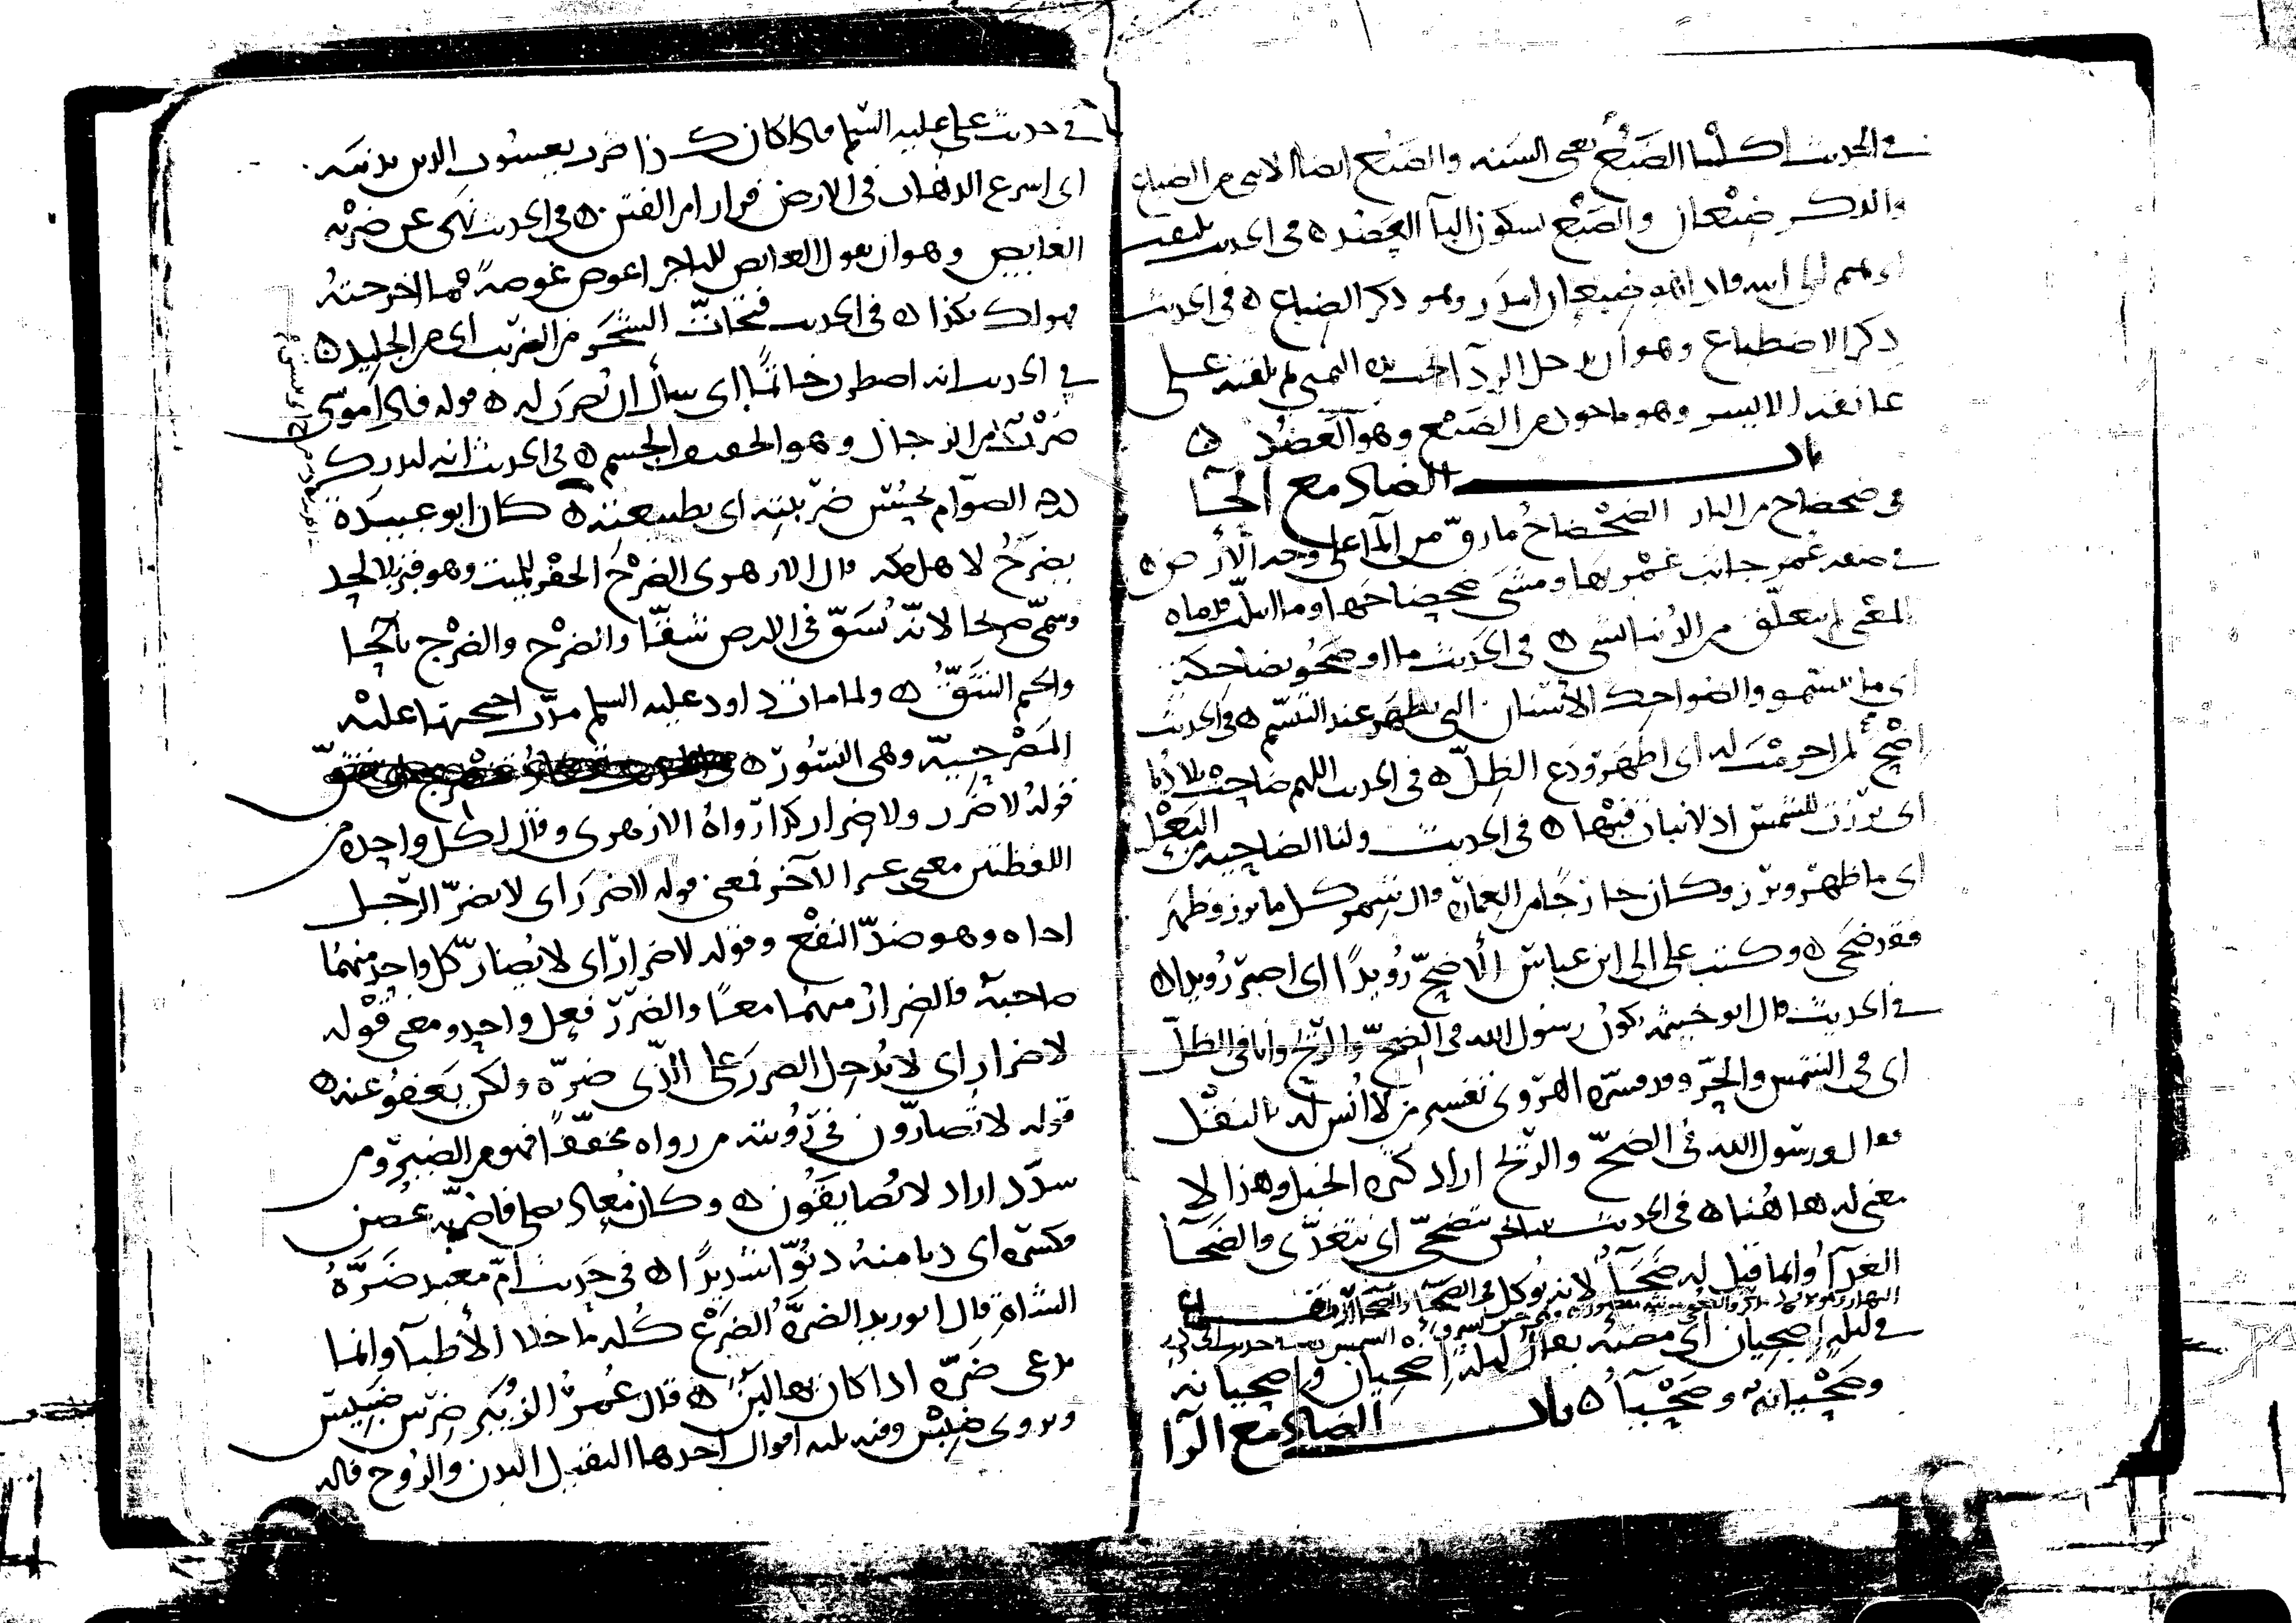 في الحديث اكلتنا الضبع يعني السنه والضبع ايضا الانثى من الضباع
والذكر ضبعان والضبع بسكون البآ العضد ه في الحديث يلتفت
ابرهيم الى ابيه فاذا هو ضبعان امدر وهو ذكر الضباع ه في الحديث
ذكر الاضطباع وهو ان يدخل الردآ تحت يده اليمنى ثم يلقيه على
عاتقه الايسر وهو ماخوذ من الضبع وهو العضد ه
باب الضاد مع الحا
في ضحضاح من النار الضحضاح ما رق من المآ على وجه الأرض ه
في صفه عمر جانب غمرتها ومشى ضحضاحها وما ابتلت قدماه
المعنى لم يتعلق من الدنيا بشي ه في الحديث ما اوضحو بضاحكة
اي ما تبسموا والضواحك الاسنان التي تظهر عند التبسم ه في الحديث
اضح لمن احرمت له اي اظهر ودع الظل ه في الحديث اللهم ضاحت بلادنا
اي برزت للشمس اذ لا نبات فيها ه في الحديث ولنا الضاحيه من البعل
اي ما ظهر وبرز وكان خارجا من العمارة قال شمر كل ما برز وظهر
فقد ضحى ه وكتب علي الى ابن عباس ألا ضح رويدا اي اصبر رويدا ه
في الحديث قال ابو خيثمه يكون رسول الله في الضح والريح وانا في الظل
اي في الشمس والحر وقد فسره الهروي تفسير من لا انس له بالنقل
فقال ورسول الله في الضح والريح اراد كثرة الخيل وهذا لا
معنى له هاهنا ه في الحديث نحن نتضحى اي نتغدى والضحآ
الغدآ وانما قيل له ضحآ لانه يوكل في الضحآ والضحآ ارتفاع
في ليله اضحيان اي مضيئه يقال ليله اضحيان واضحيانه
وضحيانة وضحيآ ه باب الضاد مع الرا
في حديث علي عليه السلم فاذا كان كذا ضرب يعسوب الدين بذنبه
اي اسرع الذهاب في الارض فرارا من الفتن ه في الحديث نهى عن ضربه
الغايص وهو ان يقول الغايص للتاجر اغوص غوصة فما اخرجته
فهو لك بكذا ه في الحديث فتحات الشجر من الضريب اي من الجليد ه
في الحديث انه اضطرب خاتما اي سأل ان يضرب له ه قوله فاذا موسى
ضرب من الرجال وهو الخفيف الجسم ه في الحديث انه ليدرك
درجه الصوام بحسن ضريبته اي بطبيعته ه كان ابو عبيدة
يضرح لاهل مكه قال الازهري الضرح الحفر للميت وهو قبر بلا لحد
وسمي ضريحا لانه يشق في الارض شقا والضرح والضرج بالحا
والجيم الشق ه ولما مات داود عليه السلم مدت اجنحتها عليه
المضرحية وهي النسور ه
قوله لا ضرر ولا ضرار كذا رواه الازهري وقال لكل واحدة من
اللفظتين معنى غير الآخر فمعنى قوله لا ضرر اي لا يضر الرجل
اخاه وهو ضد النفع وقوله لا ضرار اي لا يضار كل واحد منهما
صاحبه فالضرار منهما معا والضرر فعل واحد ومعنى قوله
لا ضرار اي لا يدخل الضرر على الذي ضره ولكن يعفو عنه ه
قوله لا تضارون في رؤيته من رواه مخففا فهو من الضير ومن
شدد اراد لا تضايقون ه وكان معاذ يصلي فاضر به غصن
فكسره اي دنا منه دنوا شديدا ه في حديث ام معبد ضرة
الشاة قال ابن دريد الضرة الضرع كله ما خلا الأطبآ وانما
تدعى ضره اذا كان بها لبن ه قال عمر الزبير ضرس ضبيس
ويروى ضبس وفيه ثلثه اقوال احدها الثقيل البدن والروح قاله